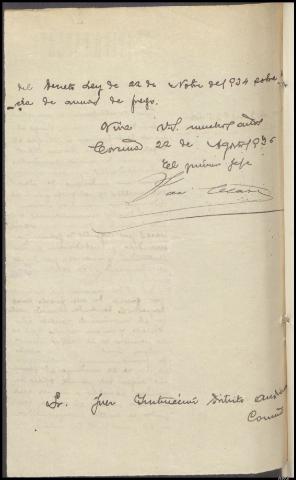 del Decreto Ley de 22 de Novbre del 934 sobre
cia de armas de fuego.
Viva Vd. muchos años
Coruña 22 de Agosto 1936
El primer Jefe
Sr. Juez Instrucción Distrito Aud
Coruña